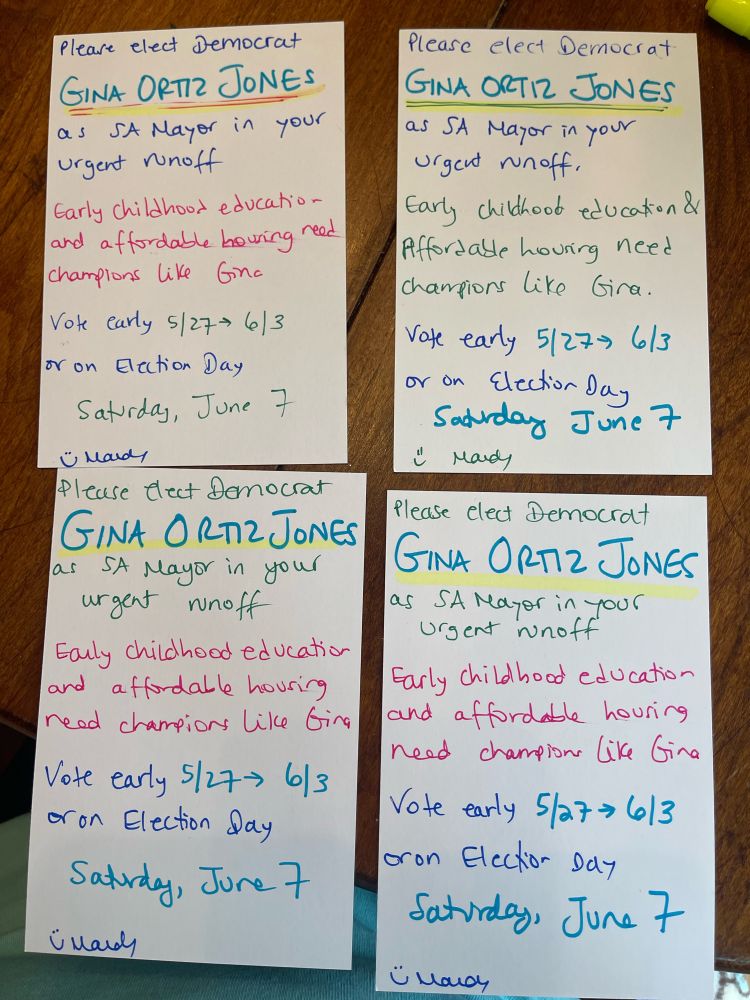 Please elect Democrat
GINA ORTIZ JONES
as SA Mayor in your
urgent runoff
Early childhood education
and affordable housing need
champions like Gina
Vote early 5/27→ 6/3
or on Election Day
Saturday, June 7
Please elect Democrat
GINA ORTIZ JONES
as SA Mayor in your
urgent runoff.
Early childhood education &
Affordable housing need
champions like Gina.
Vote early 5/27→ 6/3
or on Election Day
Saturday June 7
Please elect Democrat
GINA ORTIZ JONES
as SA Mayor in your
urgent runoff
Early childhood education
and affordable housing
need champions like Gina
Vote early 5/27→ 6/3
or on Election Day
Saturday, June 7
Please elect Democrat
GINA ORTIZ JONES
as SA Mayor in your
urgent runoff
Early childhood education
and affordable housing
need champions like Gina
Vote early 5/27→ 6/3
or on Election Day
Saturday, June 7